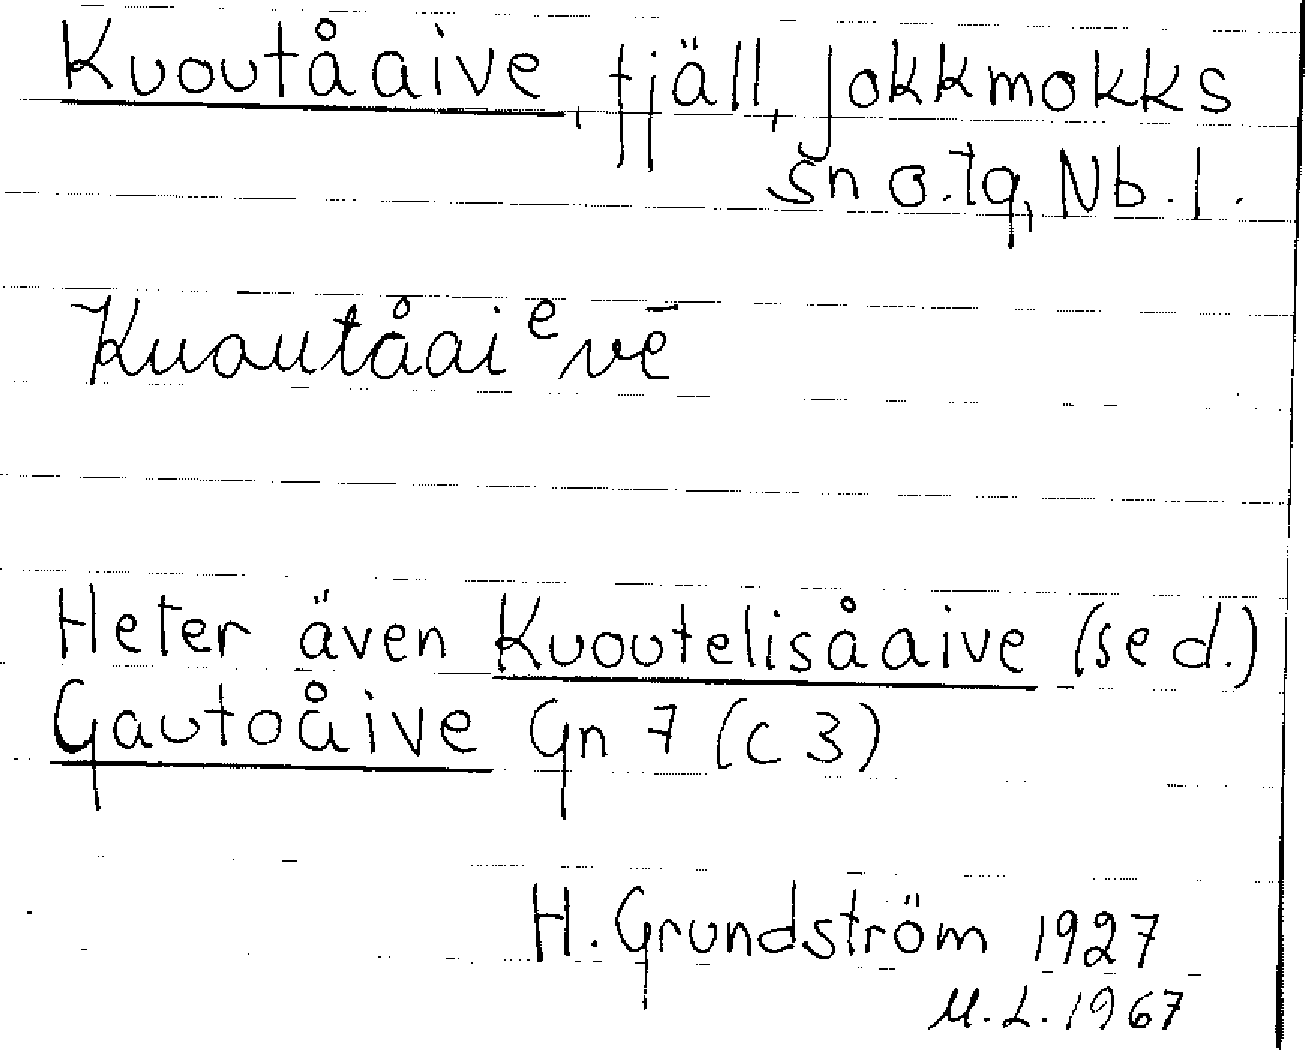 Kuoutåaive, fjäll, Jokkmokks
sn o. tg, Nb. l.
Kuoutåaiᵉvē
Heter även Kuoutelisåaive (se d.)
Gautoåive Gn 7 (C 3)
H. Grundström 1927
M. L. 1967